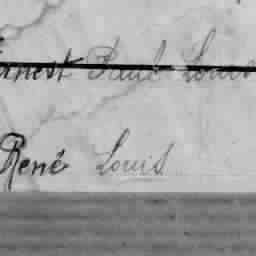 Ernest Paul Louis
René Louis